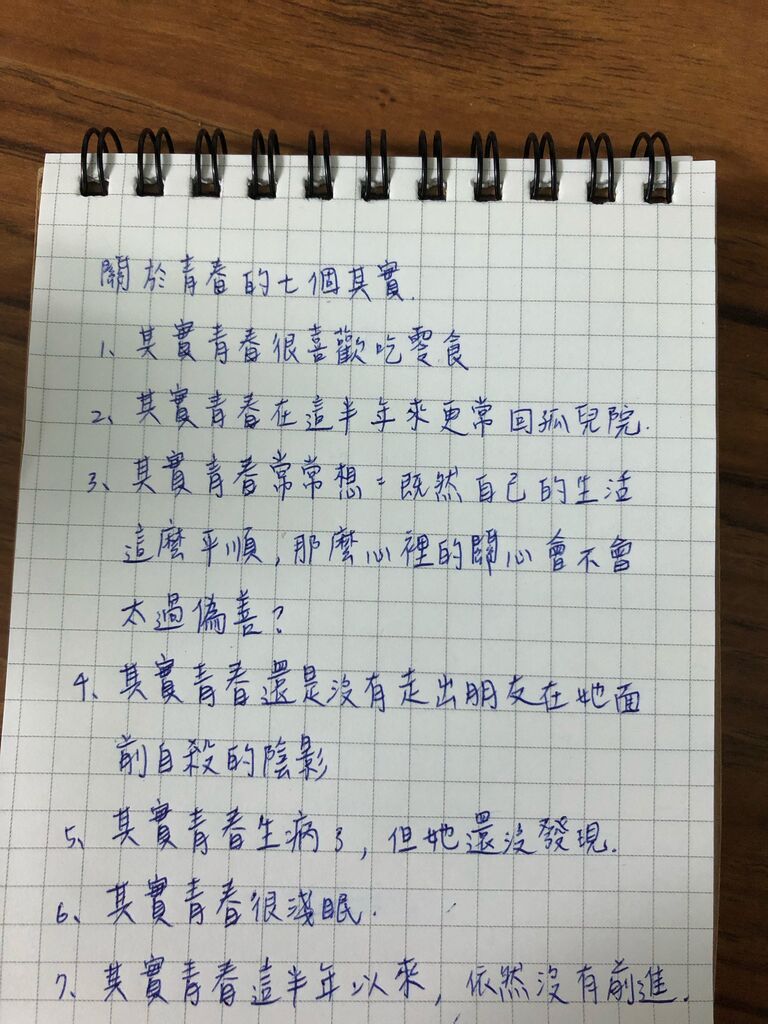 關於青春的七個其實.
1、其實青春很喜歡吃零食
2、其實青春在這半年來更常回孤兒院.
3、其實青春常常想：既然自己的生活
這麼平順,那麼心裡的關心會不會
太過偽善?
4、其實青春還是沒有走出朋友在她面
前自殺的陰影
5、其實青春生病了,但她還沒發現.
6、其實青春很淺眠.
7、其實青春這半年以來,依然沒有前進.